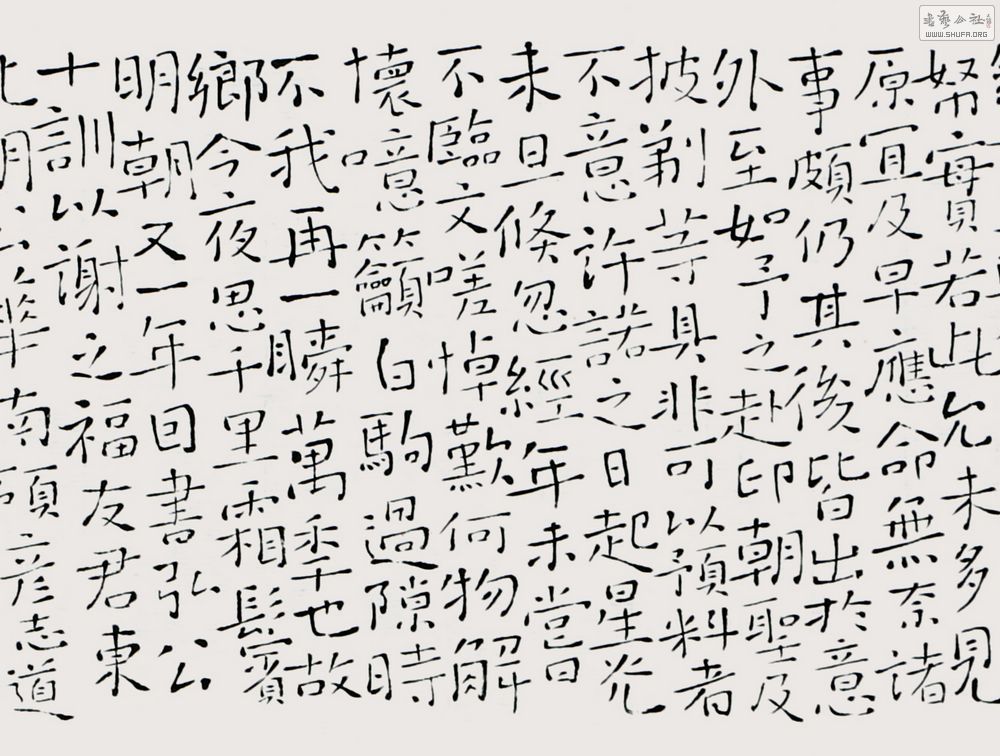 帑寶若此允未多見
原宜及早應命無奈諸
事頗仍其後皆出於意
外至如予之赴印朝聖及
披剃等具非可以預料者
不意許諾之日起星光
未旦倏忽經年未嘗日
不臨文嗟悼歎何物解
懷噫籲白駒過隙時
不我再一瞬萬季也故
鄉今夜思千里霜鬢
明朝又一年回書弘公
十訓以謝之福友君東
華南頓彥志道
書藝公社
WWW.SHUFA.ORG